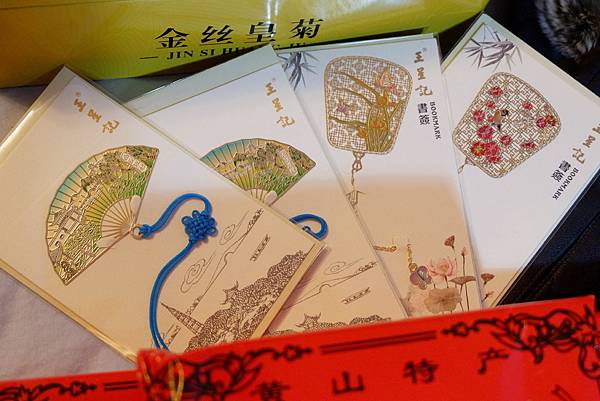 金丝皇菊
王星记
王星记
王星记
BOOKMARK
書簽
王星记
BOOKMARK
書簽
黄山特产